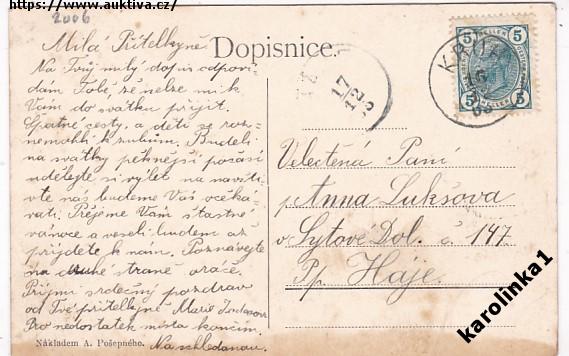 https://www.auktiva.cz/
2006
Milá Přítelkyně
Dopisnice.
Na Tvůj milý dopis odpoví-
dám Tobě, že nelze mi k
Vám do svátku přijít.
Špatné cesty, a děti se roz-
nemohli k zubům. Budeli
na svátky pěknější počasí
udělejte si výlet na navští-
vte nás budeme Vás očeka-
vati. Přejeme Vám šťastné
vánoce a veselí budem až
přijdete k nám. Poznávejte
na druhé straně oráče.
Přijmi srdečný pozdrav
od Tvé přítelkyně Marie
Pro nedostatek místa končím.
Na schledanou.
Nákladem A. Pošepného.
17
12
5 HELLER 5
5 5
Velectěná Paní
p Anna Lukšova
v Sytové Dol. č 147
Pp. Háje.
karolinka1